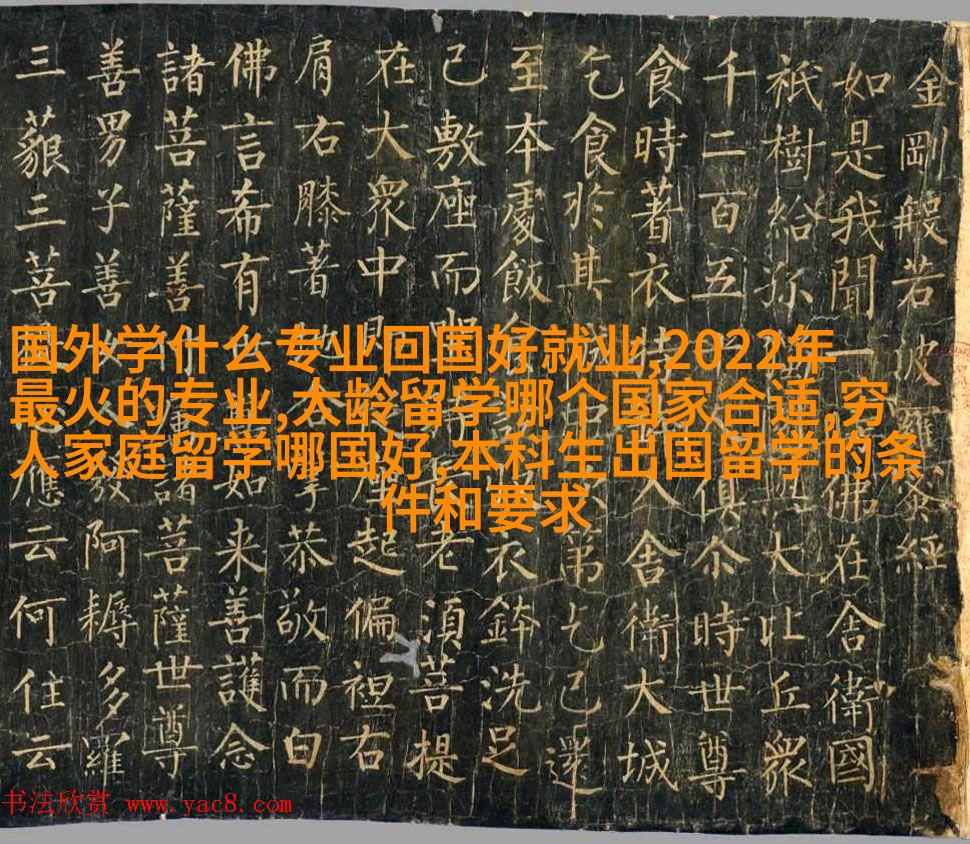 金剛般若波羅蜜經
如是我聞一時佛在舍衛國
祇樹給孤獨園與大比丘眾
千二百五十人俱尒時世尊
食時著衣持鉢入舍衛大城
乞食於其城中次第乞已還
至本處飯食訖收衣鉢洗足
已敷座而坐時長老須菩提
在大眾中即從座起偏袒右
肩右膝著地合掌恭敬而白
佛言希有世尊如来善護念
諸菩薩善付囑諸菩薩世尊
善男子善女人發阿耨多羅
三藐三菩提心應云何住云
国外学什么专业回国好就业,2022年
最火的专业,大龄留学哪个国家合适,穷
人家庭留学哪国好,本科生出国留学的条
件和要求
书法欣赏 www.yac8.com